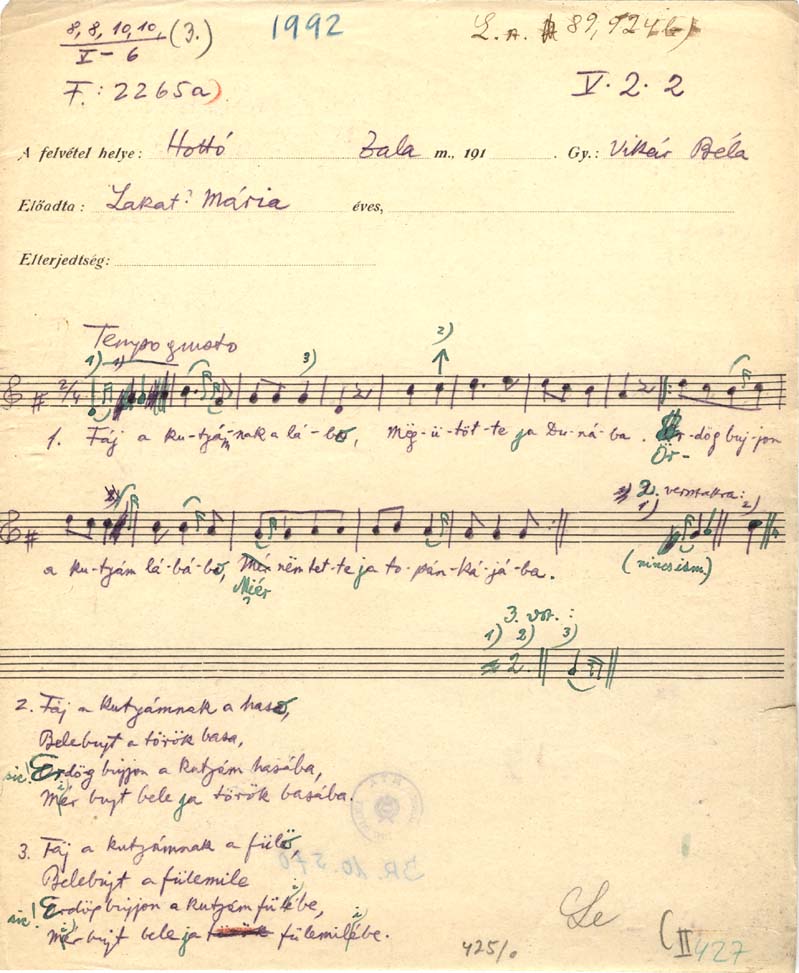 8, 8, 10, 10, (3.)
V – 6
1992
F.: 2265a)
V. 2. 2
A felvétel helye: Hottó Zala m., 191 . Gy.: Vikár Béla
Előadta: Lakat? Mária éves,
Elterjedtség:
Tempo giusto
1) 1) 3) 2)
2/4
1. Fáj a ku-tyá-m-nak a lá-bo, Még-ü-töt-te ja Du-ná-ba. Ör-dög buj-jon
Ör-
2. versszakra:
1) 2)
a ku-tyám lá-bá-bo, Mér nëm tet-te ja to-pán-ká-já-ba.
Miér
(nincs ism.)
3. vsz.:
1) 2) 3)
2.
2. Fáj a kutyámnak a haso,
Belebujt a török basa,
sic! Erdög bujjon a kutyám hasába,
Mér bujt bele ja török basába.
3. Fáj a kutyámnak a fülö,
Belebújt a fülemile
sic! Erdög bujjon a kutyám fülibe,
mér bujt bele ja fülemilébe.
425/0
Le
C II 427